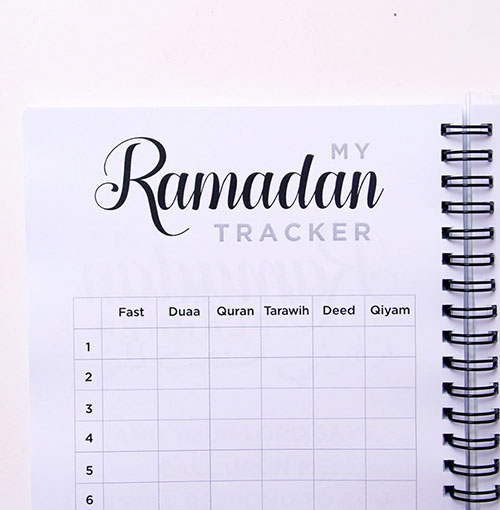 MY
Ramadan
TRACKER
Fast Duaa Quran Tarawih Deed Qiyam
1
2
3
4
5
6